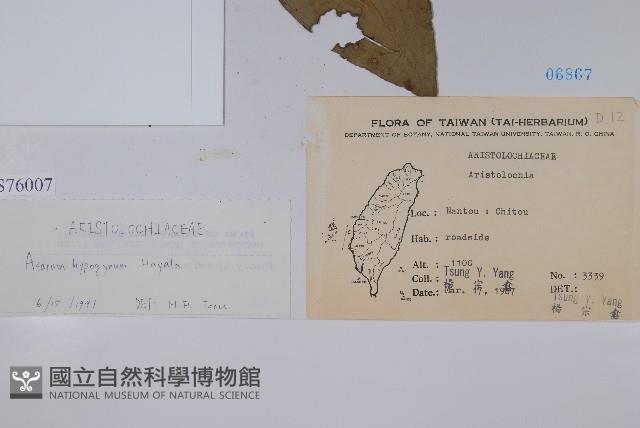 06867
FLORA OF TAIWAN (TAI-HERBARIUM) D.12
DEPARTMENT OF BOTANY, NATIONAL TAIWAN UNIVERSITY, TAIWAN, R. O. CHINA
ARISTOLOCHIACEAE
Loc. : Nantou : Chitou
Hab. : roadside
Alt. : 1100
Coll. : Tsung Y. Yang No. : 3339
楊宗
Date.: Mar. DET.:
Tsung Y. Yang
楊宗
S76007
ARISTOLOCHIACEAE
Asarum hypogynum Hayata
6/15/1991 DET:
國立自然科學博物館
NATIONAL MUSEUM OF NATURAL SCIENCE